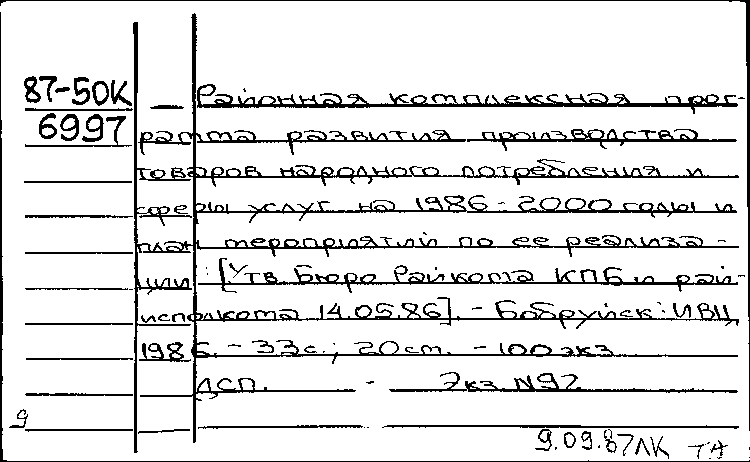 87-50К — Районная комплексная прог-
6997 рамма развития производства
товаров народного потребления и
сферы услуг на 1986-2000 годы и
план мероприятий по ее реализа-
ции: [Утв Бюро Райкома КПБ и рай-
исполкома 14.05.86]. - Бобруйск: ИВЦ,
1986. - 33с.; 20см. - 100 экз
ДСП. - Экз N92
9
9.09.87ЛК ТА